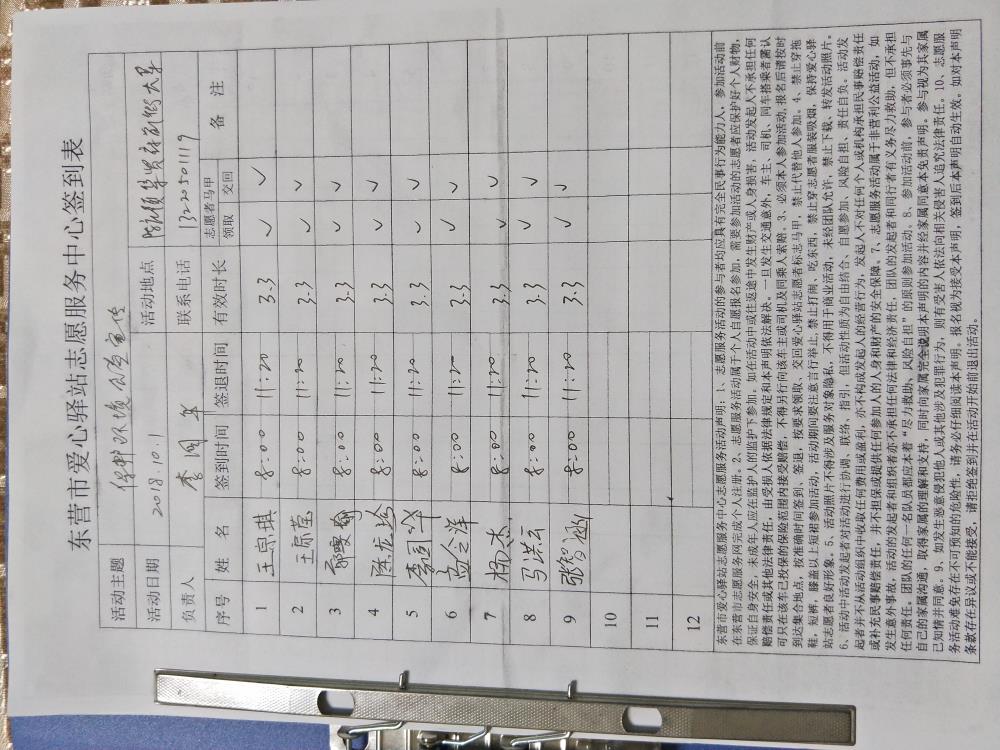 东营市爱心驿站志愿服务中心签到表
活动主题 保护环境公益宣传 活动地点
活动日期 2018.10.1 联系电话 13220501119
负责人 李国
序号 姓 名 签到时间 签退时间 有效时长 志愿者马甲 领取 交回 备 注
1 王景琪 8:00 11:20 3.3 ✓ ✓
2 王 8:00 11:20 3.3 ✓ ✓
3 8:00 11:20 3.3 ✓ ✓
4 陈龙 8:00 11:20 3.3 ✓ ✓
5 李 8:00 11:20 3.3 ✓ ✓
6 8:00 11:20 3.3 ✓ ✓
7 杨杰 8:00 11:20 3.3 ✓ ✓
8 马洪云 8:00 11:20 3.3 ✓ ✓
9 张智 8:00 11:20 3.3 ✓ ✓
10
11
12
东营市爱心驿站志愿服务中心志愿服务活动声明：1、志愿服务活动的参与者均应具有完全民事行为能力人，参加活动前
在东营市志愿服务网完成个人注册。2、志愿服务活动属于个人自愿报名参加，需要参加活动的志愿者应保护好个人财物，
保证自身安全，未成年人应在监护人的监护下参加。如在活动中或往返途中发生财产或人身损害，活动发起人不承担任何
赔偿责任或其他法律责任，由受损人依据法律规定和本声明依法解决。一旦发生交通意外，车主、司机、同车搭乘者潜认
可只在该车已投保的保险范围内接受赔偿，不得另行向该车主或司机及同乘人索赔。3、必须本人参加活动，报名后请按时
到达集合地点，按准确时间签到、签退，按要求领取、交回爱心驿站志愿者标志马甲，禁止代替他人参加。4、禁止穿拖
鞋，短裤，膝盖以上短裙参加活动，活动期间要注意言行举止，禁止打闹、吃东西，禁止穿志愿者服装吸烟，保持爱心驿
站志愿者良好形象。5、活动照片不得涉及服务对象隐私，不得用于商业活动，未经团队允许，禁止下载、转发活动照片。
6、活动中活动发起者对活动进行协调、联络、指引，但活动性质为自由结合、自愿参加、风险自担、责任自负。活动发
起者并不从活动组织中收取任何费用或盈利，亦不构成发起人的经营行为，发起人不对任何个人或机构承担民事赔偿责任
或补充民事赔偿责任，并不担保或提供任何参加人的人身和财产的安全保障。7、志愿服务活动属于非营利公益活动，如
发生意外事故，活动的发起者和组织者亦不承担任何法律和经济责任。团队的发起者和同行者有义务尽力救助，但不承担
任何责任。团队的任何一名队员都应本着“尽力救助、风险自担”的原则参加活动。8、参加活动前，参与者必须事先与
自己的家属沟通，取得家属的理解和支持，同时向家属完全说明本声明的内容并经家属同意本免责声明。参与视为其家属
已知情并同意。9、如发生恶意侵犯他人或其他涉及犯罪行为，则有受害人依法向相关侵害人追究法律责任。10、志愿服
务活动难免存在不可预知的危险性，请务必仔细阅读本声明。报名视为接受本声明，签到后本声明自动生效。如对本声明
条款存在异议或不能接受，请拒绝签到并在活动开始前退出活动。